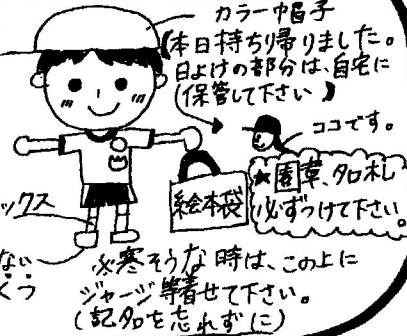 カラー帽子
(本日持ち帰りました。
日よけの部分は、自宅に
保管して下さい)
ココです。
★園章、名札
必ずつけて下さい。
絵本袋
ックス
ない
くつ
※寒そうな時は、この上に
ジャージ等着せて下さい。
(記名を忘れずに)